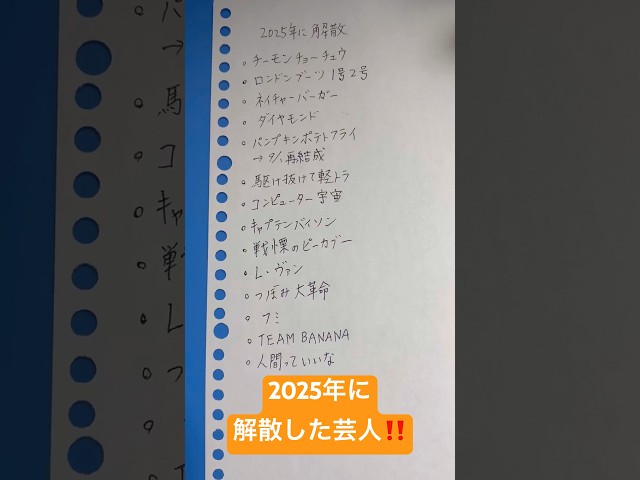 2025年に解散
・チーモンチョーチュウ
・ロンドンブーツ1号2号
・ネイチャーバーガー
・ダイヤモンド
・パンプキンポテトフライ
→9/1再結成
・駆け抜けて軽トラ
・コンピューター宇宙
・キャプテンバイソン
・戦慄のピーカブー
・L.ヴァン
・つぼみ大革命
・フミ
・TEAM BANANA
・人間っていいな
2025年に
解散した芸人‼️